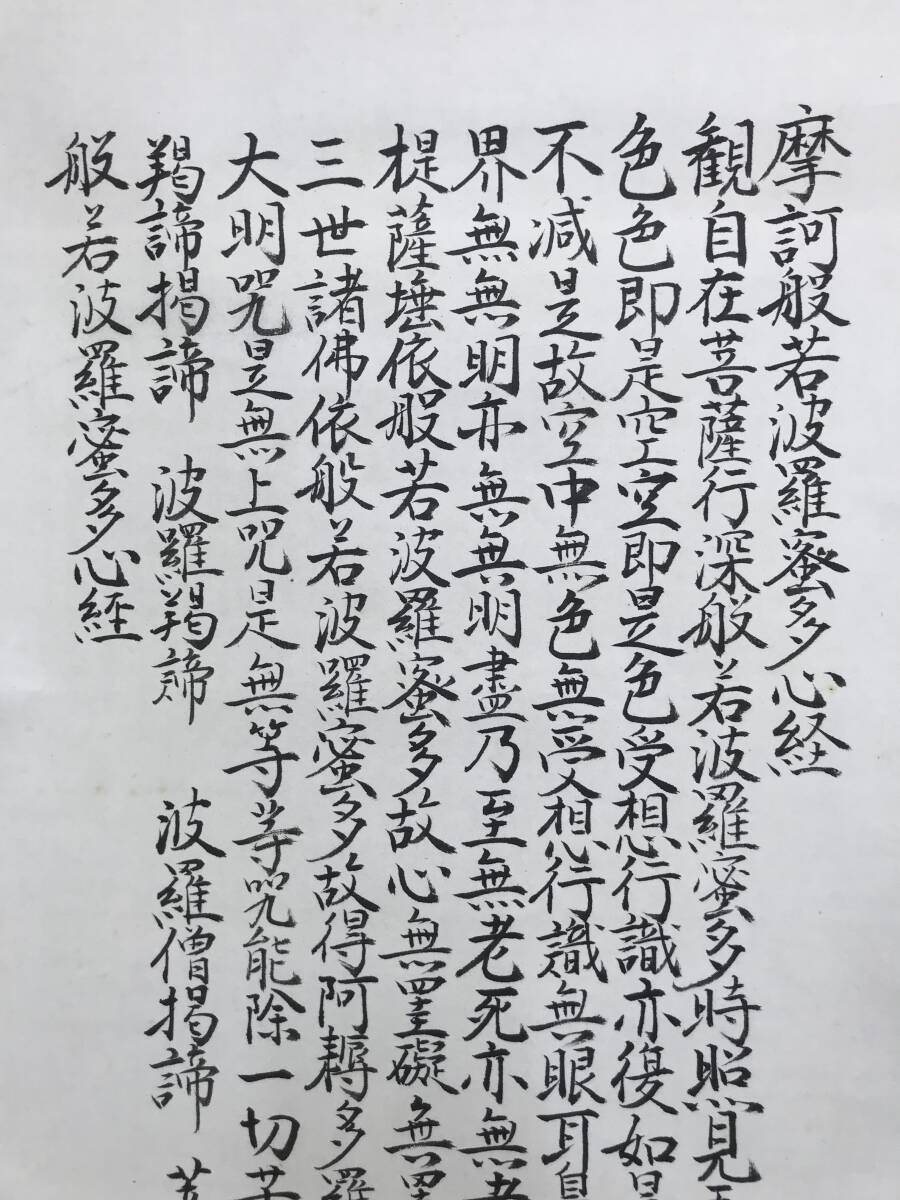 摩訶般若波羅蜜多心経
観自在菩薩行深般若波羅蜜多時照見
色色即是空空即是色受想行識亦復如是
不減是故空中無色無受想行識無眼耳
界無無明亦無無明盡乃至無老死亦無
提薩埵依般若波羅蜜多故心無罣礙無罣
三世諸佛依般若波羅蜜多故得阿耨多羅
大明咒是無上咒是無等等咒能除一切苦
羯諦揭諦 波羅羯諦 波羅僧揭諦
般若波羅蜜多心経